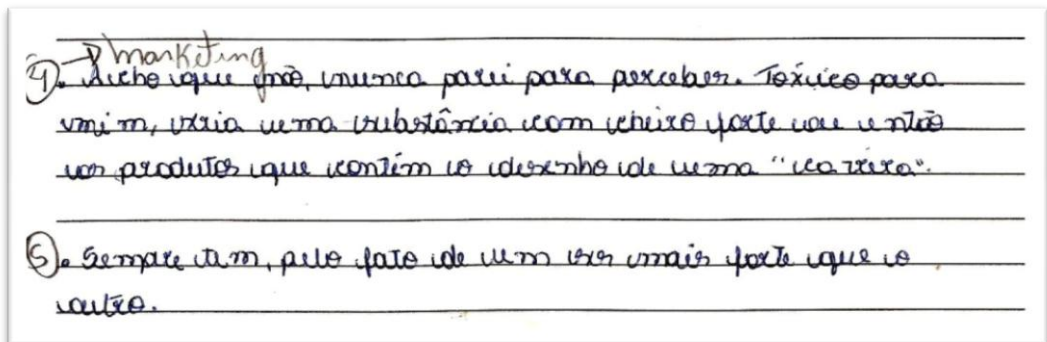 → Marketing
4). Acho que não, nunca parei para perceber. Tóxico para
mim, seria uma substância com cheiro forte ou então
os produtos que contém o desenho de uma "caveira".
5). Sempre tem, pelo fato de um ser mais forte que o
outro.